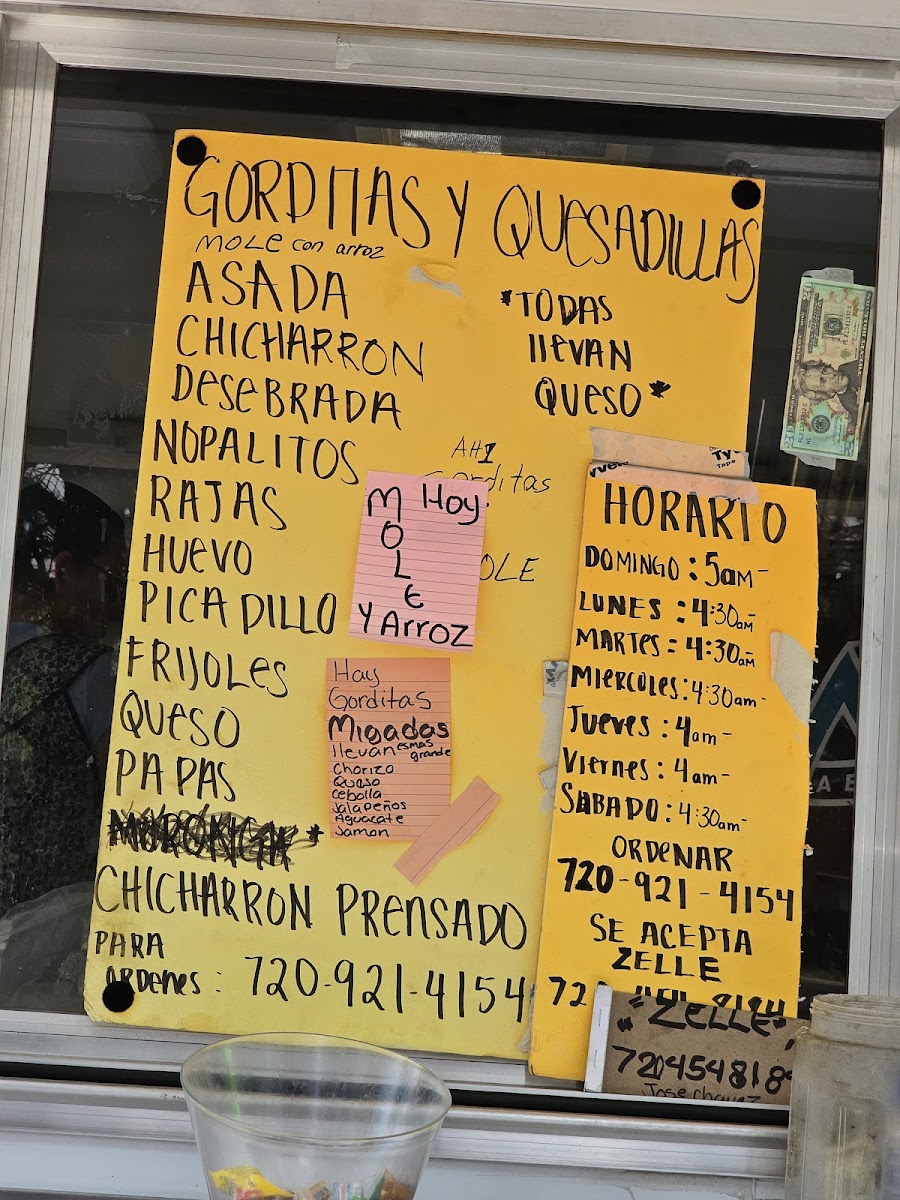 GORDITAS Y QUESADILLAS
MOLE con arroz
ASADA
CHICHARRON
DESEBRADA
NOPALITOS
RAJAS
HUEVO
PICADILLO
FRIJOLES
QUESO
PAPAS
CHICHARRON PRENSADO
PARA
ORDENES: 720-921-4154
*TODAS
llevan
QUESO*
AHI
Gorditas
OLE
Hoy
MOLE
Y Arroz
Hay
Gorditas
Migadas
llevan esmas grande
Chorizo
Queso
Cebolla
Jalapeños
Aguacate
Jamon
HORARIO
DOMINGO: 5am-
LUNES: 4:30am
MARTES: 4:30am
MIERCOLES: 4:30am-
JUEVES: 4am-
VIERNES: 4am-
SABADO: 4:30am-
ORDENAR
720-921-4154
SE ACEPTA
ZELLE
72
"ZELLE"
720454818
Jose chavez